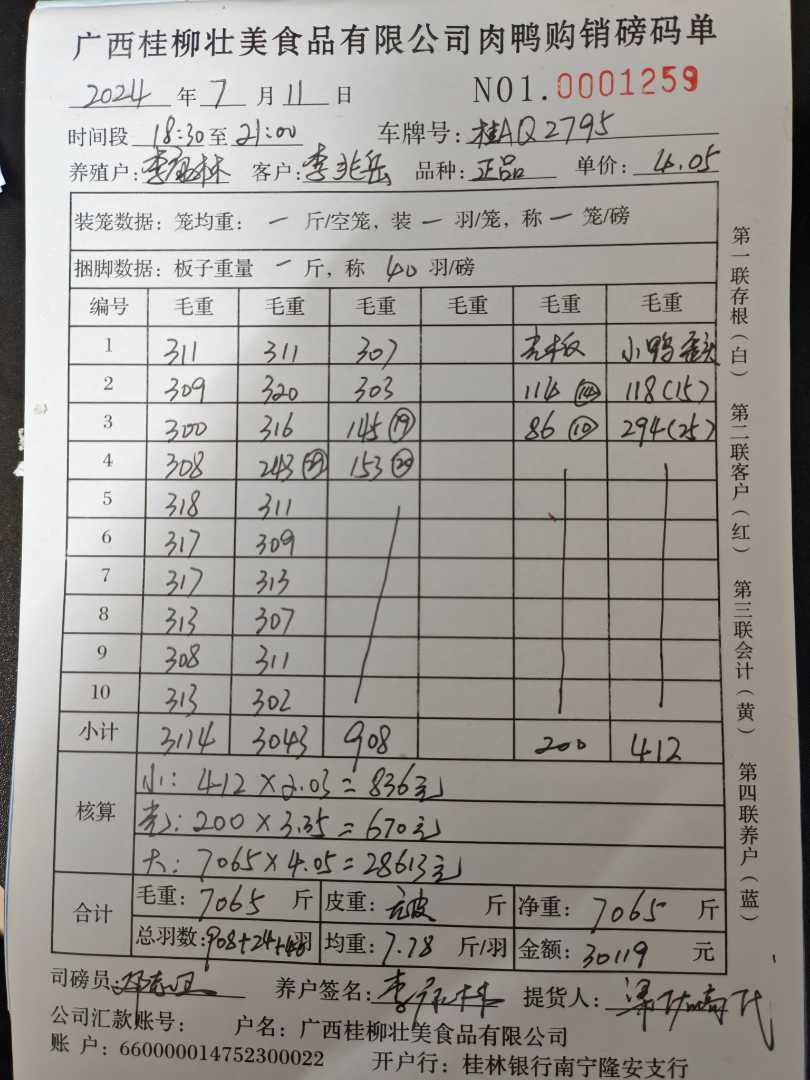 广西桂柳壮美食品有限公司肉鸭购销磅码单
2024 年 7 月 11 日 NO1.0001259
时间段 18:30 至 21:00 车牌号: 桂AQ2795
养殖户: 李 林 客户: 李兆岳 品种: 正品 单价: 4.05
装笼数据: 笼均重: 一 斤/空笼, 装 一 羽/笼, 称 一 笼/磅
捆脚数据: 板子重量 一 斤, 称 40 羽/磅
编号 毛重 毛重 毛重 毛重 毛重 毛重
1 311 311 307 壳板 小鸭
2 309 320 303 114 (14) 118(15)
3 300 316 145 (19) 86 (10) 294(25)
4 308 243 153 (20)
5 318 311
6 317 309
7 317 313
8 313 307
9 308 311
10 313 302
小计 3114 3043 908 200 412
核算
小: 412×2.03=836元
壳: 200×3.35=670元
大: 7065×4.05=28613元
合计
毛重: 7065 斤 皮重: 斤 净重: 7065 斤
总羽数: 908+24+40羽 均重: 7.78 斤/羽 金额: 30119 元
司磅员: 养户签名: 李 林 提货人: 梁 代
公司汇款账号: 户名: 广西桂柳壮美食品有限公司
账 户: 660000014752300022 开户行: 桂林银行南宁隆安支行
第一联存根(白) 第二联客户(红) 第三联会计(黄) 第四联养户(蓝)